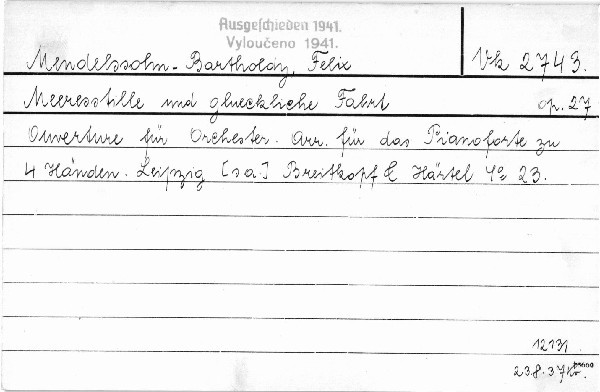 Ausgeschieden 1941.
Vyloučeno 1941.
Mendelssohn-Bartholdy, Felix Vk 2743.
Meeresstille und glueckliche Fahrt op. 27
Ouverture für Orchester. Arr. für das Pianoforte zu
4 Händen. Leipzig [s.a.] Breitkopf & Härtel 4º 23.
23.8.37